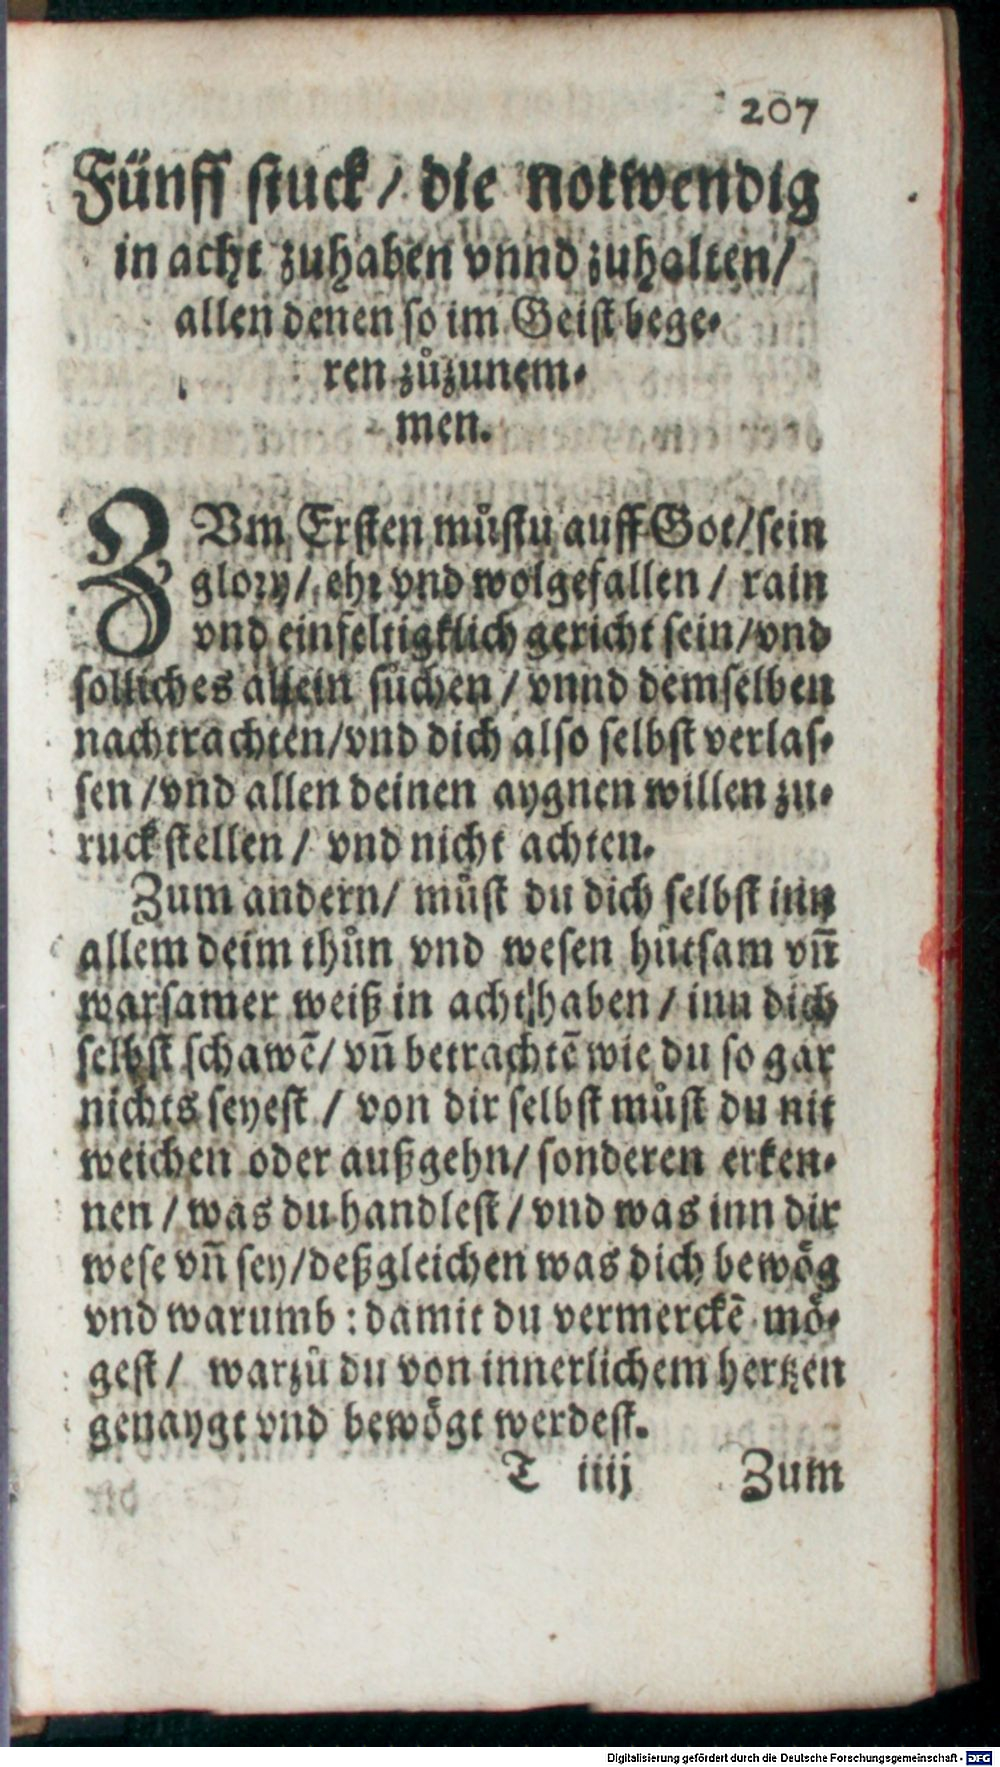 207
Fünff stuck / die notwendig
in acht zuhaben vnnd zuhalten/
allen denen so im Geist bege-
ren zůzunem-
men.
ZVm Ersten můstu auff Got/sein
glory/ ehr vnd wolgefallen / rain
vnd einfeltigklich gericht sein/vnd
solliches allein sůchen / vnnd demselben
nachtrachten/vnd dich also selbst verlas-
sen /vnd allen deinen aygnen willen zu-
ruck stellen / vnd nicht achten.
Zum andern/ můst du dich selbst inn
allem deim thůn vnd wesen hůtsam vn̄
warsamer weiß in acht haben / inn dich
selbst schawē/ vn̄ betrachtē wie du so gar
nichts seyest / von dir selbst můst du nit
weichen oder außgehn/ sonderen erken-
nen / was du handlest / vnd was inn dir
wese vn̄ sey/deßgleichen was dich bewög
vnd warumb : damit du vermerckē mö-
gest / warzů du von innerlichem hertzen
genaygt vnd bewögt werdest.
T iiij Zum
Digitalisierung gefördert durch die Deutsche Forschungsgemeinschaft - DFG